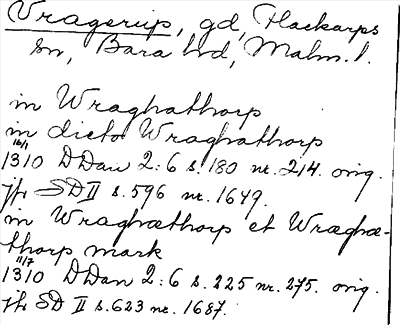 Vragerup, gd, Flackarps
sn, Bara hd, Malm. l.
in Wraghathorp
in dicto Wraghathorp
16/1
1310 DDan 2:6 s. 180 nr. 214. orig.
jfr SD II s. 596 nr. 1649.
in Wraghæthorp et Wræghæ-
thorp mark
11/7
1310 DDan 2:6 s. 225 nr. 275. orig.
jfr SD II s. 623 nr. 1687.